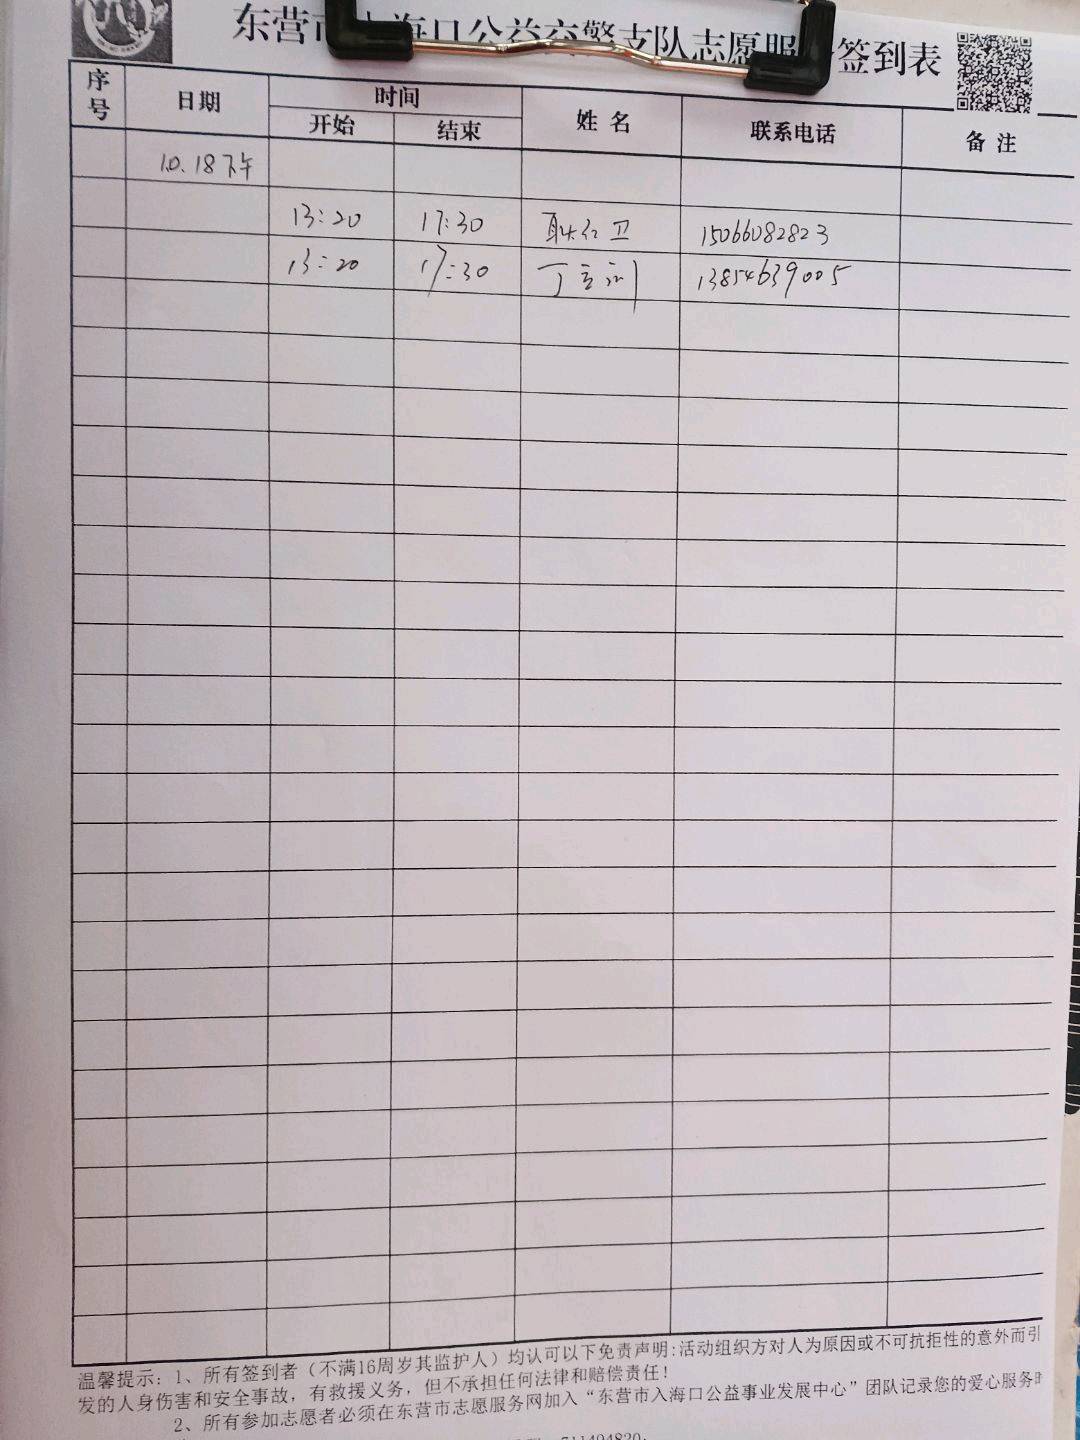 东营市入海口公益交警支队志愿服 签到表
序号 日期 时间 开始 结束 姓名 联系电话 备注
10.18下午
13:20 17:30 耿红卫 15066082823
13:20 17:30 13854639005
温馨提示：1、所有签到者（不满16周岁其监护人）均认可以下免责声明:活动组织方对人为原因或不可抗拒性的意外而引
发的人身伤害和安全事故，有救援义务，但不承担任何法律和赔偿责任！
2、所有参加志愿者必须在东营市志愿服务网加入“东营市入海口公益事业发展中心”团队记录您的爱心服务时